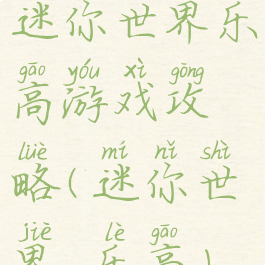 迷你世界乐
gāo yóu xì gōng
高游戏攻
lüè mí nǐ shì
略(迷你世
jiè lè gāo
界乐高)